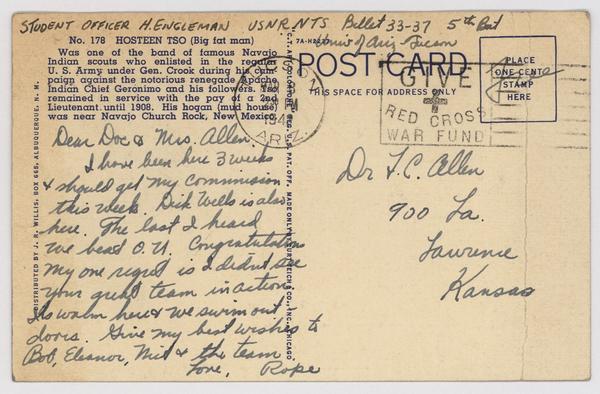 STUDENT OFFICER H. ENGLEMAN USNR. NTS Billet 33-37 5th Bat
Univ of Ariz Tucson
No. 178 HOSTEEN TSO (Big fat man)
Was one of the band of famous Navajo
Indian scouts who enlisted in the regular
U. S. Army under Gen. Crook during his campaign
against the notorious renegade Apache
Indian Chief Geronimo and his followers. Tso
remained in service with the pay of a 2nd
Lieutenant until 1908. His hogan (mud house)
was near Navajo Church Rock, New Mexico.
DISTRIBUTED BY J. R. WILLIS, BOX 665, ALBUQUERQUE, N. M.
C.T. ART-COLORTONE REG. U.S. PAT. OFF. MADE ONLY BY CURT TEICH & CO., INC., CHICAGO
7A-H2837
POST CARD
THIS SPACE FOR ADDRESS ONLY
PLACE
ONE CENT
STAMP
HERE
Free
TUCSON
PM
ARIZ.
GIVE
RED CROSS
WAR FUND
Dear Doc & Mrs. Allen.
I have been here 3 weeks
& should get my commission
this week. Dick Wells is also
here. The last I heard
we beat O.U. Congratulations
My one regret is I didn't see
your great team in action
Its warm here & we swim out
doors. Give my best wishes to
Bob, Eleanor, Mit & the team
Love, Rope
Dr F.C. Allen
900 La.
Lawrence
Kansas